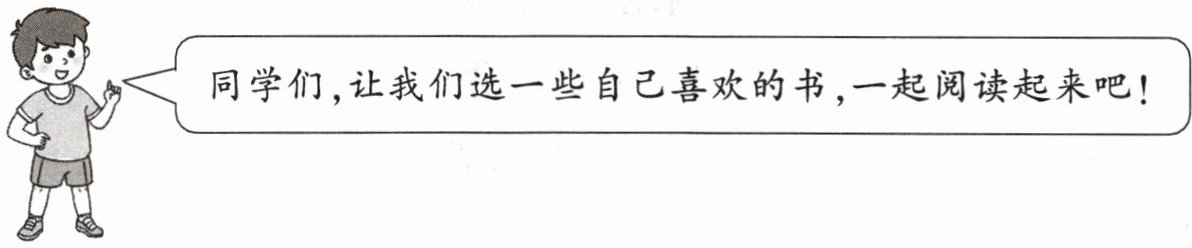 同学们,让我们选一些自己喜欢的书,一起阅读起来吧!